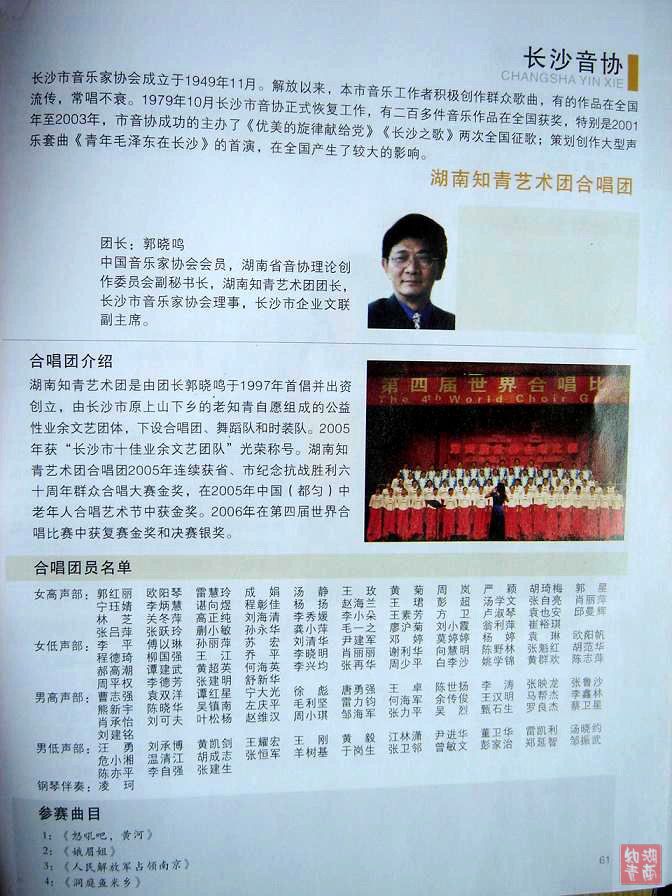 长沙音协
CHANGSHA YIN XIE
长沙市音乐家协会成立于1949年11月。解放以来，本市音乐工作者积极创作群众歌曲，有的作品在全国
流传，常唱不衰。1979年10月长沙市音协正式恢复工作，有二百多件音乐作品在全国获奖，特别是2001
年至2003年，市音协成功的主办了《优美的旋律献给党》《长沙之歌》两次全国征歌；策划创作大型声
乐套曲《青年毛泽东在长沙》的首演，在全国产生了较大的影响。
湖南知青艺术团合唱团
团长：郭晓鸣
中国音乐家协会会员，湖南省音协理论创
作委员会副秘书长，湖南知青艺术团团长，
长沙市音乐家协会理事，长沙市企业文联
副主席。
合唱团介绍
湖南知青艺术团是由团长郭晓鸣于1997年首倡并出资
创立，由长沙市原上山下乡的老知青自愿组成的公益
性业余文艺团体，下设合唱团、舞蹈队和时装队。2005
年获“长沙市十佳业余文艺团队”光荣称号。湖南知
青艺术团合唱团2005年连续获省、市纪念抗战胜利六
十周年群众合唱大赛金奖，在2005年中国（都匀）中
老年人合唱艺术节中获金奖。2006年在第四届世界合
唱比赛中获复赛金奖和决赛银奖。
第四届世界合唱比
The 4th World Choir G
合唱团员名单
女高声部：郭红丽 欧阳琴 雷慧玲 成娟 汤静 王玫 黄菊 周岚 严颖 胡琦梅 郭星
宁珏婧 李炳慧 谌向煜 程彰佳 杨扬 赵海兰 王珺 彭超 汤学文 张自亮 肖丽萍
林芝 关冬萍 高正纯 刘海清 李秀媛 李小朵 王素芳 方卫 卢淑琴 袁也安 邱曼辉
张吕萍 张跃玲 蒯小敏 孙永华 龚小萍 毛一之 廖沪菊 刘小霞 翁利萍 崔裕琪
女低声部：李平 傅以琳 孙丽萍 苏宏 刘清华 尹建军 邓婷 莫婷婷 杨婷 袁琳 欧阳帆
程德琦 柳国强 王江 乔平 李晓明 肖丽丽 谢利华 向慧明 陈野林 张魁红 胡范华
郝高潮 谭建武 黄超英 何海英 李兴均 张再华 周少平 白李沙 姚学锦 黄群欢 陈志萍
周平权 李德芳 张建明 舒新华
男高声部：曹志强 袁双洋 谭红星 宁大光 徐彪 唐勇强 王卓 陈世扬 李涛 张映龙 张鲁沙
熊新宇 陈晓华 吴镇南 左庆平 毛利坚 雷力钧 何海军 余传俊 王汉明 马帮杰 李鑫林
肖承怡 刘可夫 叶松杨 赵维汉 周小琪 邹海军 张力平 吴烈 甄石生 罗良杰 蔡卫星
刘建铭
男低声部：汪勇 刘承博 黄凯剑 王耀宏 王刚 黄毅 江林潇 尹进华 董卫华 雷凯利 汤晓约
危小湘 温清江 胡成志 张恒军 羊树基 于岗生 张卫邻 曾敏文 彭家治 郑延智 邹振武
陈亦平 李自强 张建生
钢琴伴奏：凌珂
参赛曲目
1：《怒吼吧，黄河》
2：《娥眉姐》
3：《人民解放军占领南京》
4：《洞庭鱼米乡》
61
湖南
知青